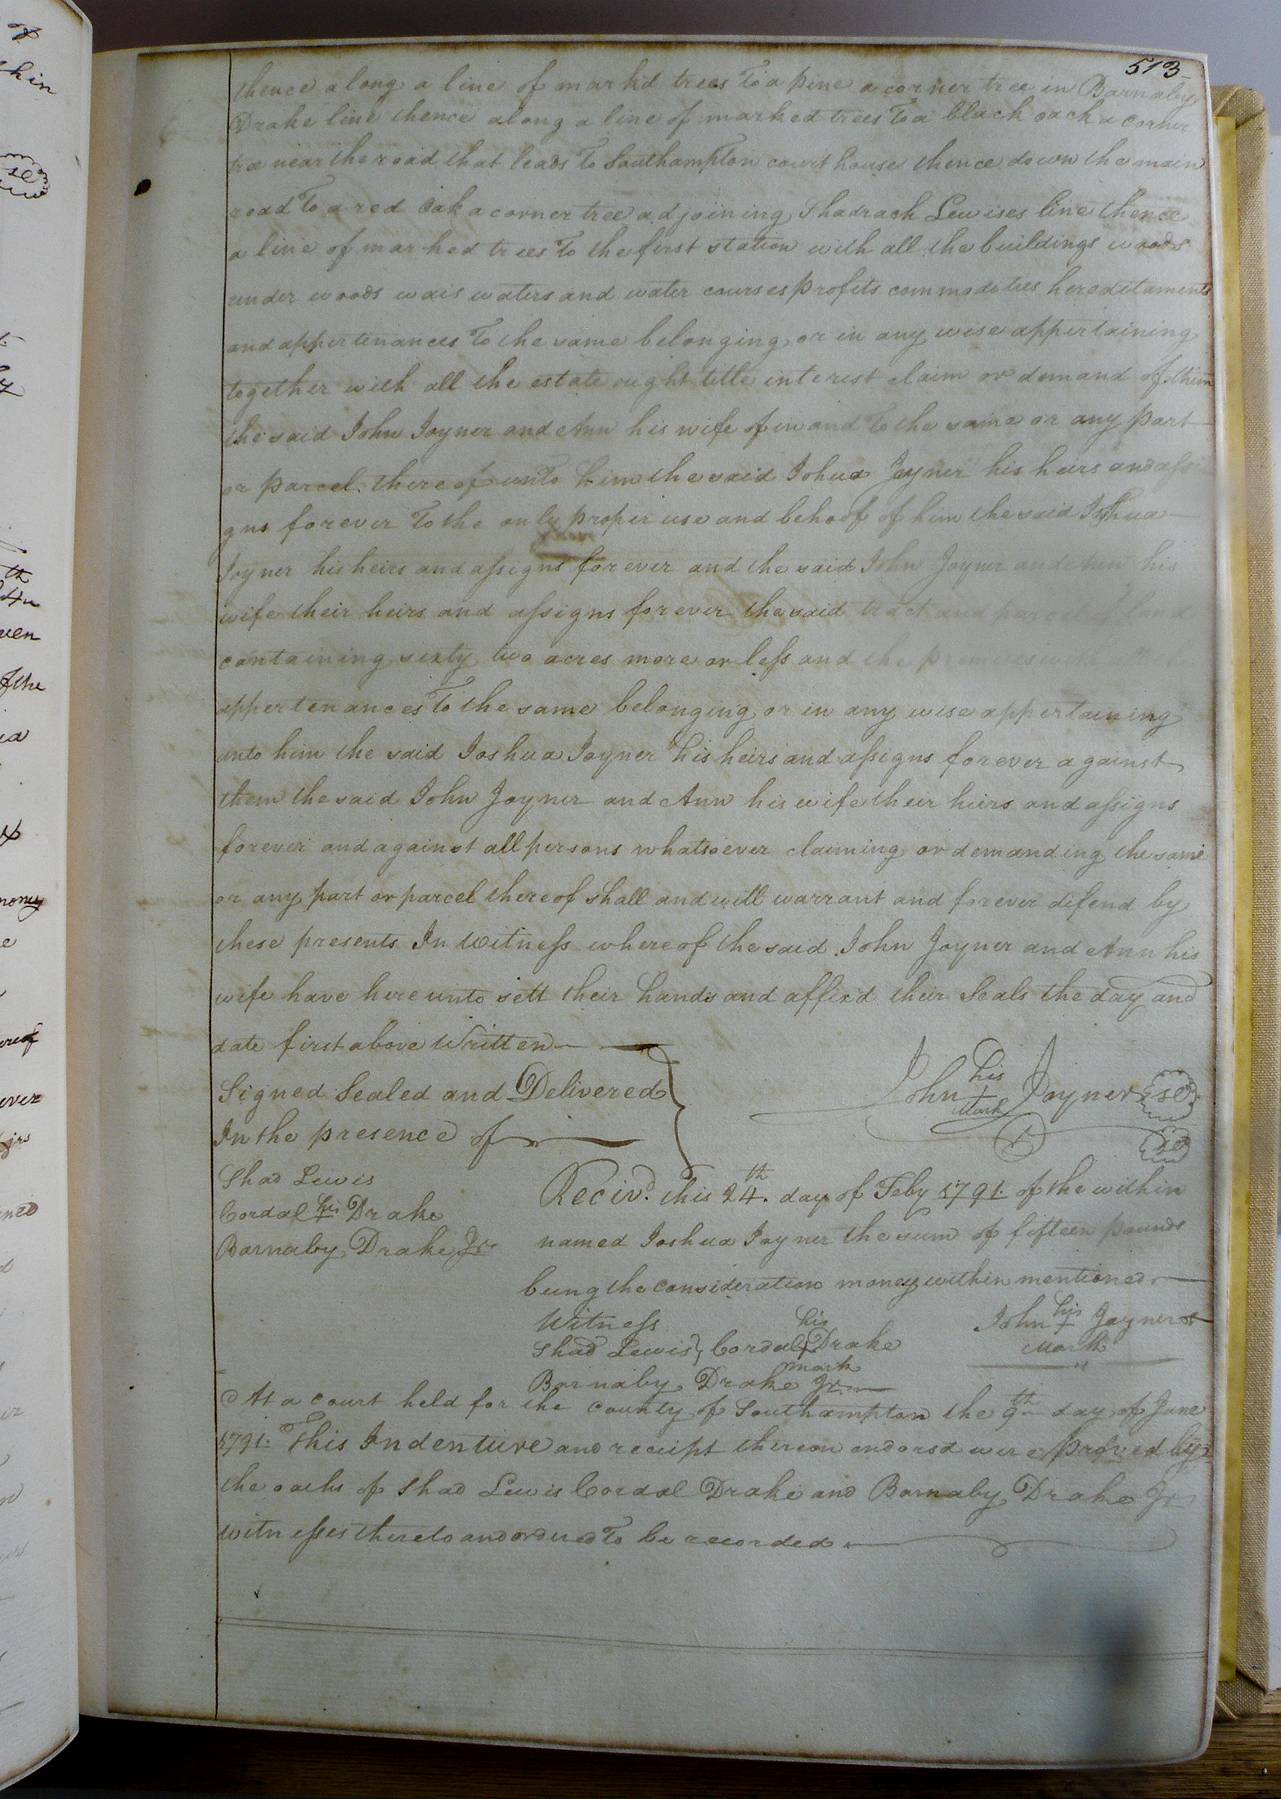 513
thence along a line of markd trees To a pine a corner tree in Barnaby
Drake line thence along a line of marked trees To a black oack a corner
tree near the road that leads To Southampton court house thence down the main
road To a red Oak a corner tree adjoining Shadrach Lewises line thence
a line of marked trees To the first station with all the buildings woods
under woods wais waters and water courses profits commodeties hereditaments
and appertenances To the same belonging or in any wise appertaining
together with all the estate right title interist claim or demand of them
the said John Joyner and Ann his wife of in and To the same or any part
or parcel thereof unto him the said Joshua Joyner his heirs and assi
gns forever To the only proper use and behoof of him the said Joshua
Joyner his heirs and assigns forever and the said John Joyner and Ann his
wife their heirs and assigns forever the said tract and parcel of land
containing sixty two acres more or less and the premises with
appertenances To the same belonging or in any wise appertaining
unto him the said Joshua Joyner his heirs and assigns forever against
them the said John Joyner and Ann his wife their heirs and assigns
forever and against all persons whatsoever claiming or demanding the same
or any part or parcel thereof shall and will warrant and forever difend by
these presents In Witness whereof the said John Joyner and Ann his
wife have hereunto sett their hands and affixd their Seals the day and
date first above Written
Signed Sealed and Delivered
In the presence of
John his + Mark Joyner Seal
Seal
Shad Lewis
Cordal his + Drake
Barnaby Drake Jr.
Recivd. this 24.th day of Feby 1791 of the within
named Joshua Joyner the sum of fifteen pounds
being the consideration money within mentioned
Witness
Shad Lewis } Cordal his + mark Drake
Barnaby Drake Jr.
John his + Mark Joyner
At a court held for the county of Southampton the 9th day of June
1791. This Indenture and receipt thereon endorsd were proved by
the oaths of Shad Lewis Cordal Drake and Barnaby Drake Jr
witnesses thereto and ordered To be recorded